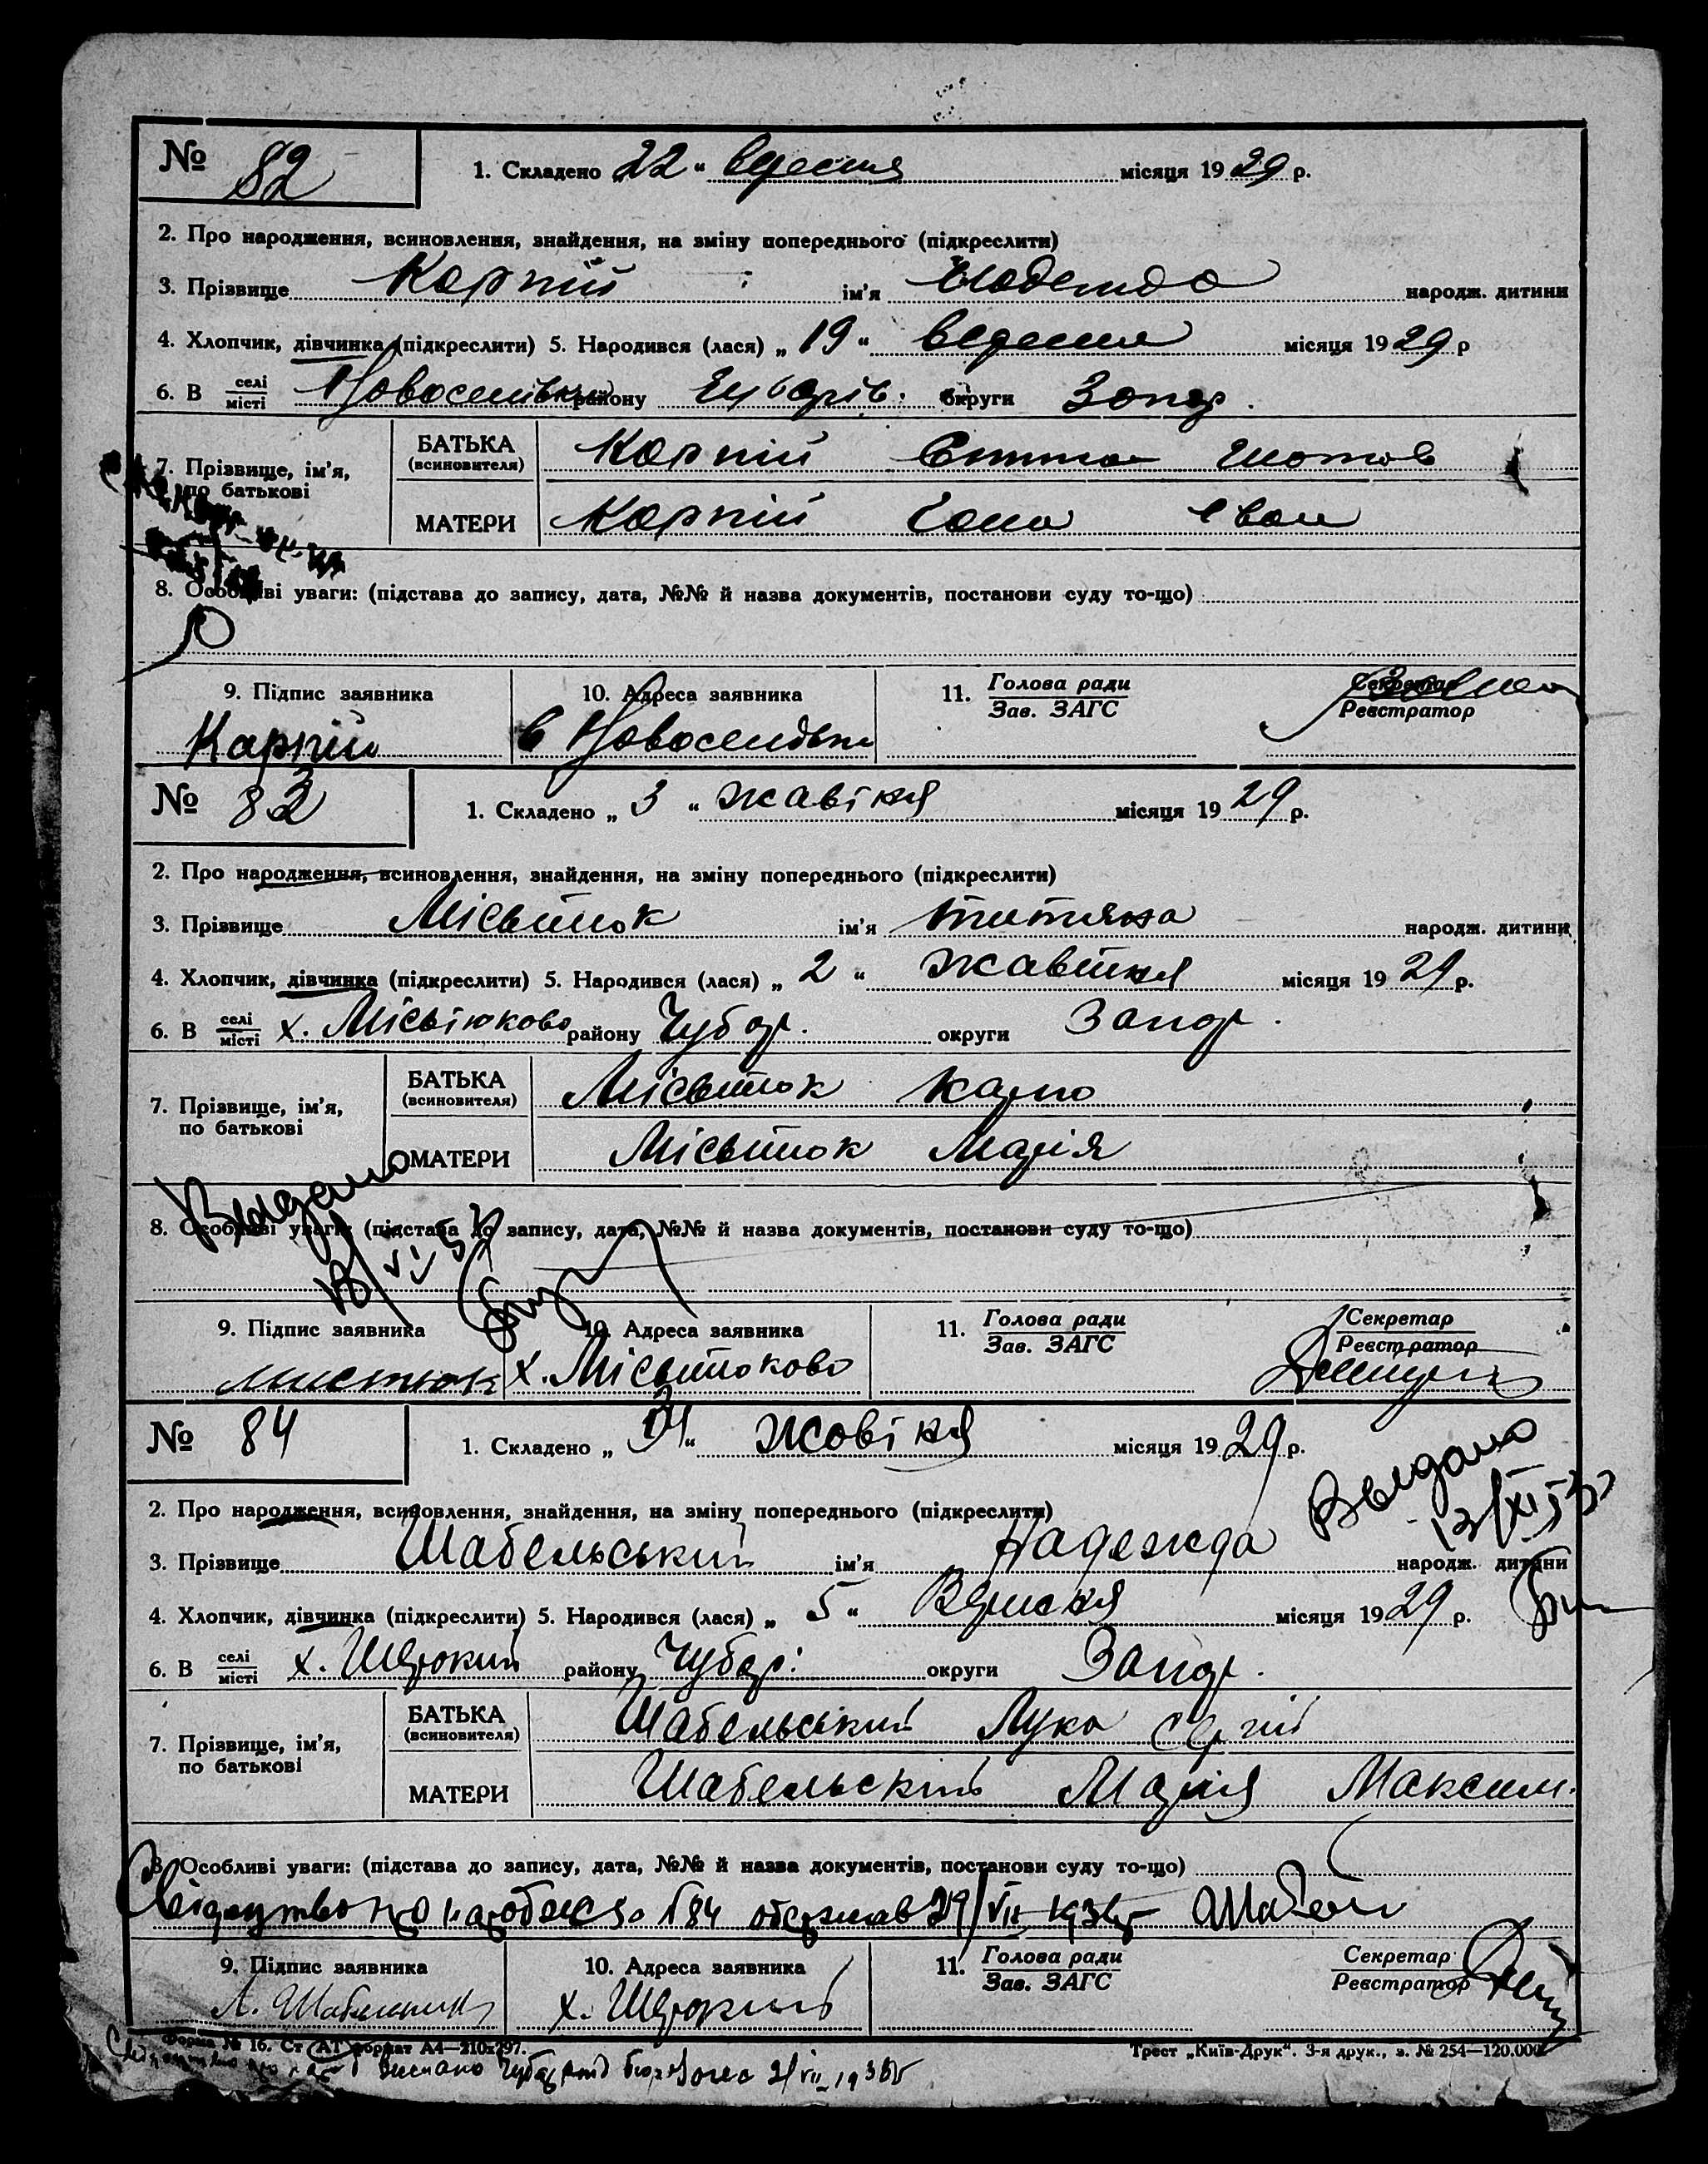 № 82 1. Складено „22“ вересня місяця 1929 р.
2. Про народження, всиновлення, знайдення, на зміну попереднього (підкреслити)
3. Прізвище Карпій ім'я Надежда народж. дитини
4. Хлопчик, дівчинка (підкреслити) 5. Народився (лася) „19“ вересня місяця 1929 р
6. В селі/місті Новоселівка району округи Запор.
7. Прізвище, ім'я, по батькові
БАТЬКА (всиновителя) Карпій
МАТЕРИ Карпій Іван
8. Особливі уваги: (підстава до запису, дата, №№ й назва документів, постанови суду то-що)
9. Підпис заявника 10. Адреса заявника 11. Голова ради/Зав. ЗАГС Секретар/Реєстратор
Карпій
№ 83 1. Складено „3“ жавтня місяця 1929 р.
2. Про народження, всиновлення, знайдення, на зміну попереднього (підкреслити)
3. Прізвище Місьтюк ім'я Титяна народж. дитини
4. Хлопчик, дівчинка (підкреслити) 5. Народився (лася) „2“ жавтня місяця 1929 р.
6. В селі/місті х. Місьтюково району Чубар. округи Запор.
7. Прізвище, ім'я, по батькові
БАТЬКА (всиновителя) Місьтюк Карпо
МАТЕРИ Місьтюк Марія
Выдано
8. Особливі уваги: (підстава до запису, дата, №№ й назва документів, постанови суду то-що)
9. Підпис заявника 10. Адреса заявника 11. Голова ради/Зав. ЗАГС Секретар/Реєстратор
мистюк х. Місьтюково
№ 84 1. Складено жовтня місяця 1929 р.
Выдано
2. Про народження, всиновлення, знайдення, на зміну попереднього (підкреслити)
3. Прізвище Шабельський ім'я Надежда народж. дитини
4. Хлопчик, дівчинка (підкреслити) 5. Народився (лася) „5“ Вересня місяця 1929 р.
6. В селі/місті х. Широкий району Чубар. округи Запор.
7. Прізвище, ім'я, по батькові
БАТЬКА (всиновителя) Шабельський Лука Сергій
МАТЕРИ Шабельський Марія Максим.
8. Особливі уваги: (підстава до запису, дата, №№ й назва документів, постанови суду то-що)
№ 84 VII
9. Підпис заявника 10. Адреса заявника 11. Голова ради/Зав. ЗАГС Секретар/Реєстратор
Л. х. Широкий
Форма № 16. Ст АТ формат А4—210x297. Трест „Київ-Друк“. 3-я друк., з. № 254—120.000